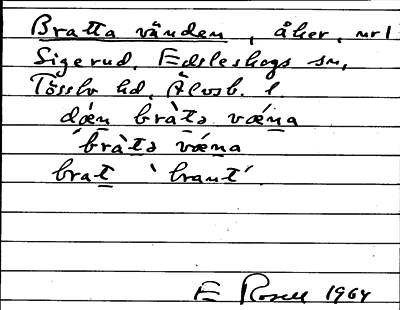 Bratta vänden, åker, nr 1
Sigerud, Edsleskogs sn,
Tössbo hd, Älvsb. l.
dǽn bràtə vǽna
'bràtə vǽna
brat 'brant'
E Rosell 1964